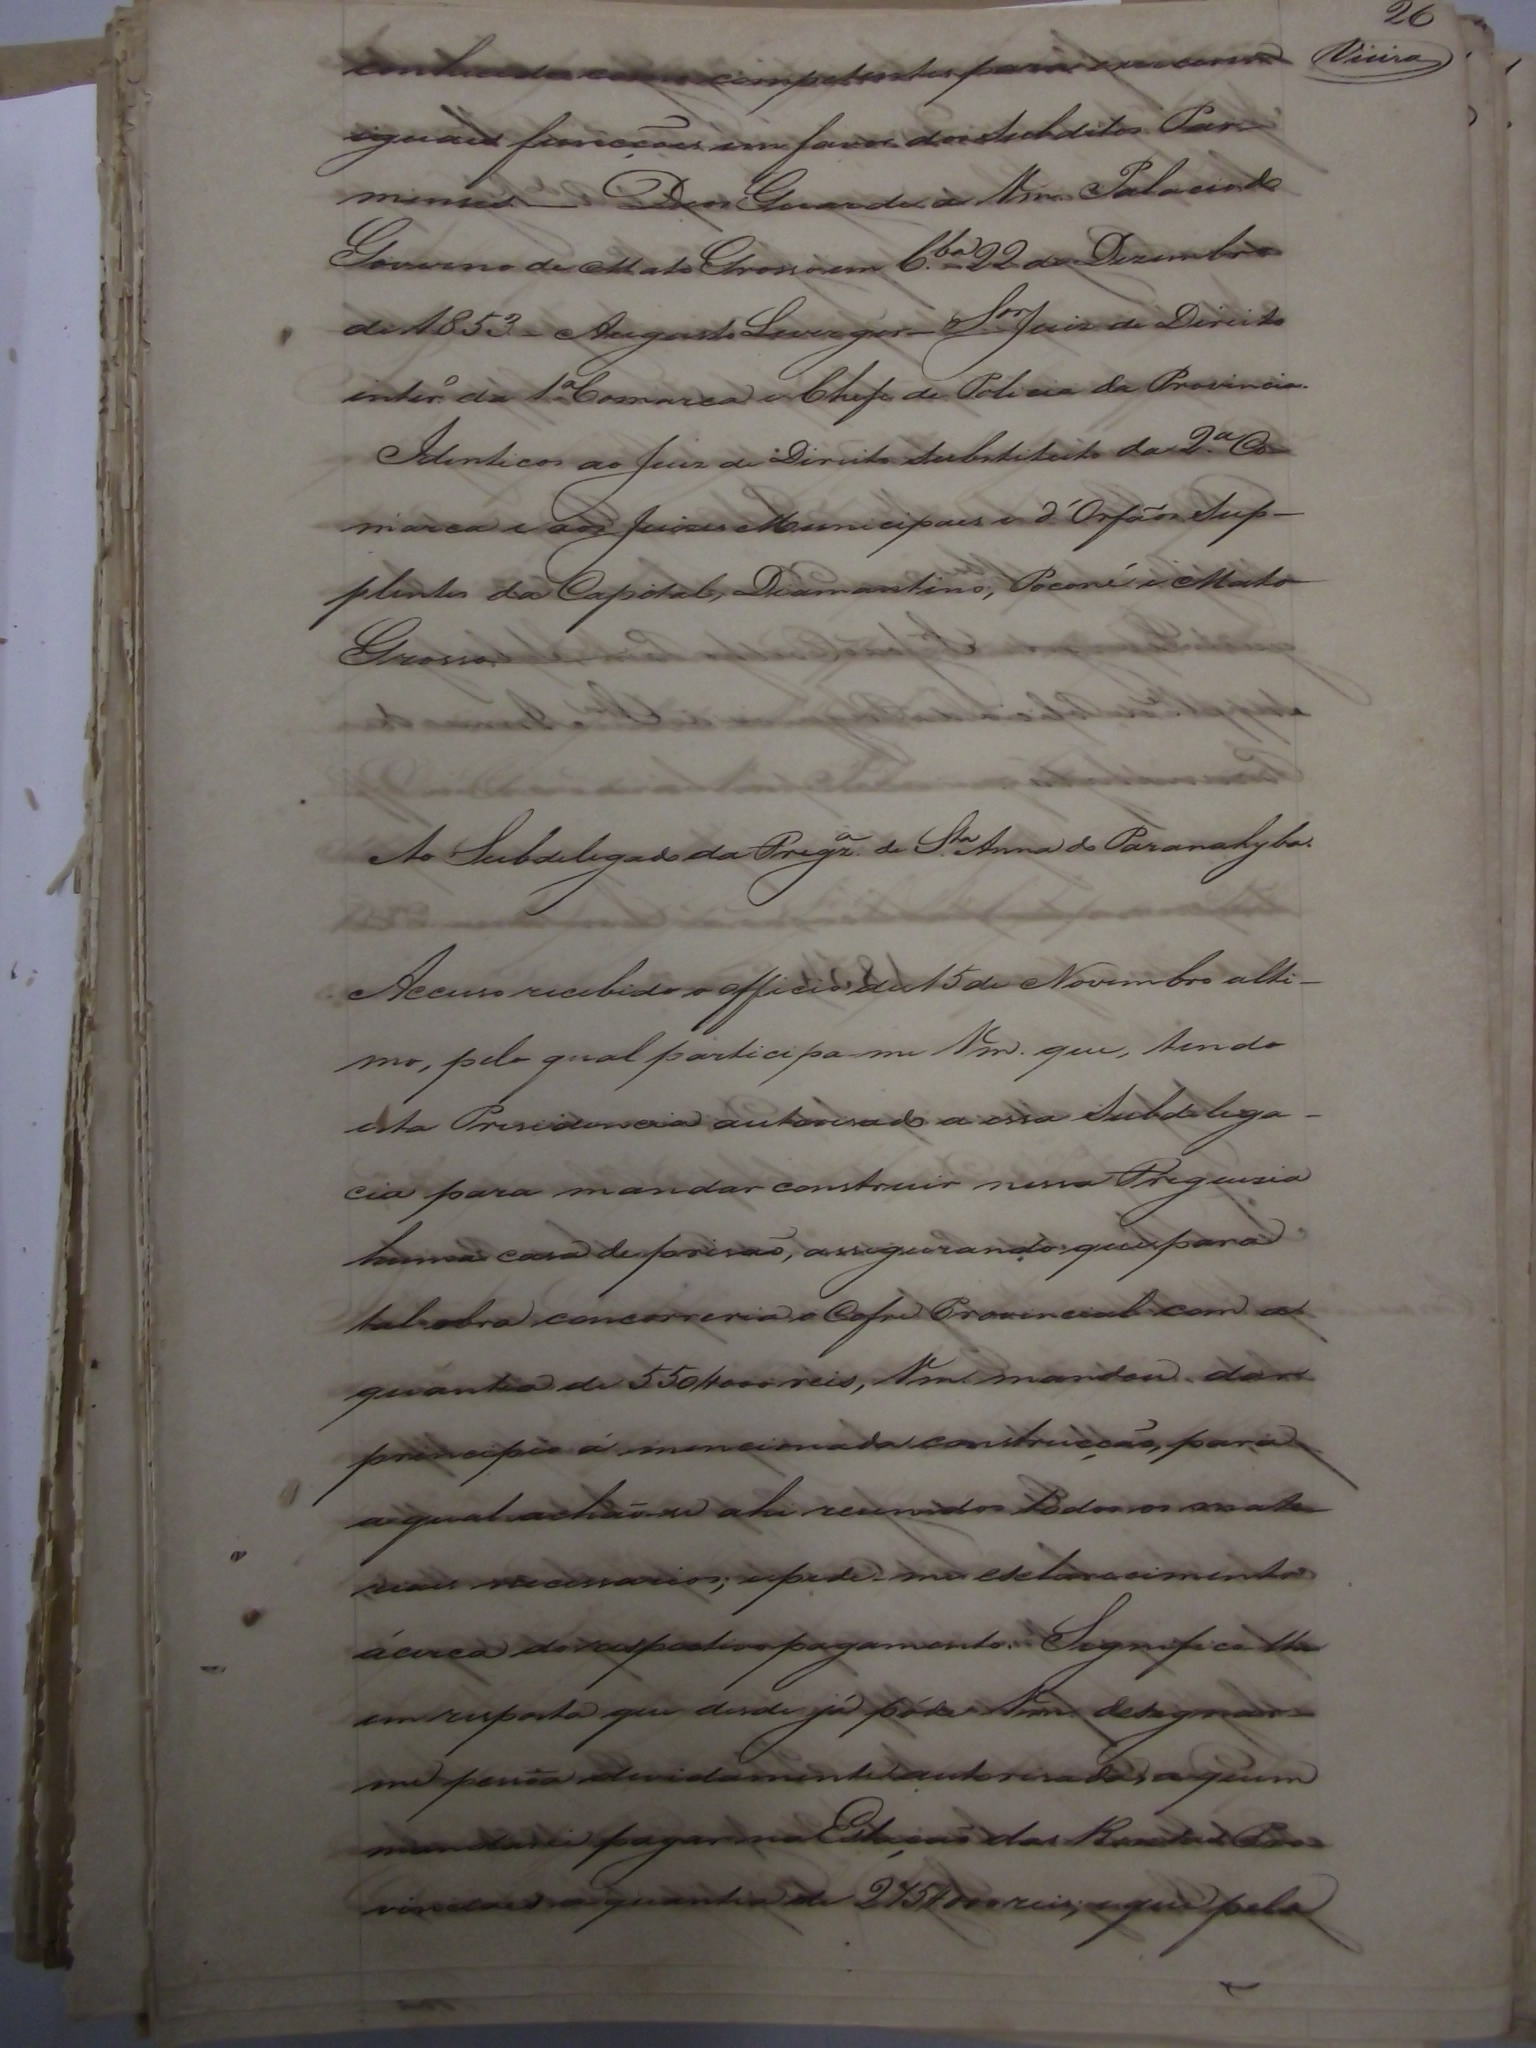 26
Vieira
conhecido como competente para exercer
iguais funcções em favor dos Subditos Par-
menses — Deos Guarde a Vm. Palacio do
Governo de Mato Grosso em C.bá 22 de Dezembro
de 1853 – Augusto Leverger – Sor Juiz de Direito
intero da 1ª Comarca e Chefe de Policia da Provincia.
Identicos ao Juiz de Direito Substituto da 2.ª Co-
marca e aos Juizes Municipaes e d'Orfãos Sup-
plentes da Capital, Diamantino, Poconé e Mato
Grosso.
Ao Subdelegado da Fregz.ª de Sta Anna do Paranahyba.
Accuso recebido o officio de 15 de Novembro ulti-
mo, pelo qual participa-me Vm. que, tendo
esta Presidencia autorisado a essa Subdelega-
cia para mandar construir nessa Freguesia
huma casa de prisaõ, assegurando que para
tal obra concorreria o Cofre Provincial com a
quantia de 550$000 reis, Vm. mandou dar
principio á mencionada construcção, para
a qual achão-se ahi reunidos todos os mate
riaes necessarios; e pede-me esclarecimento
ácerca do respectivo pagamento. Significo lhe
em resposta que desde já póde Vm. designar-
me pessôa devidamente autorisada, a quem
mandarei pagar na Estação das Rendas Pro-
vinciaes a quantia de 275$000 reis; e que pela